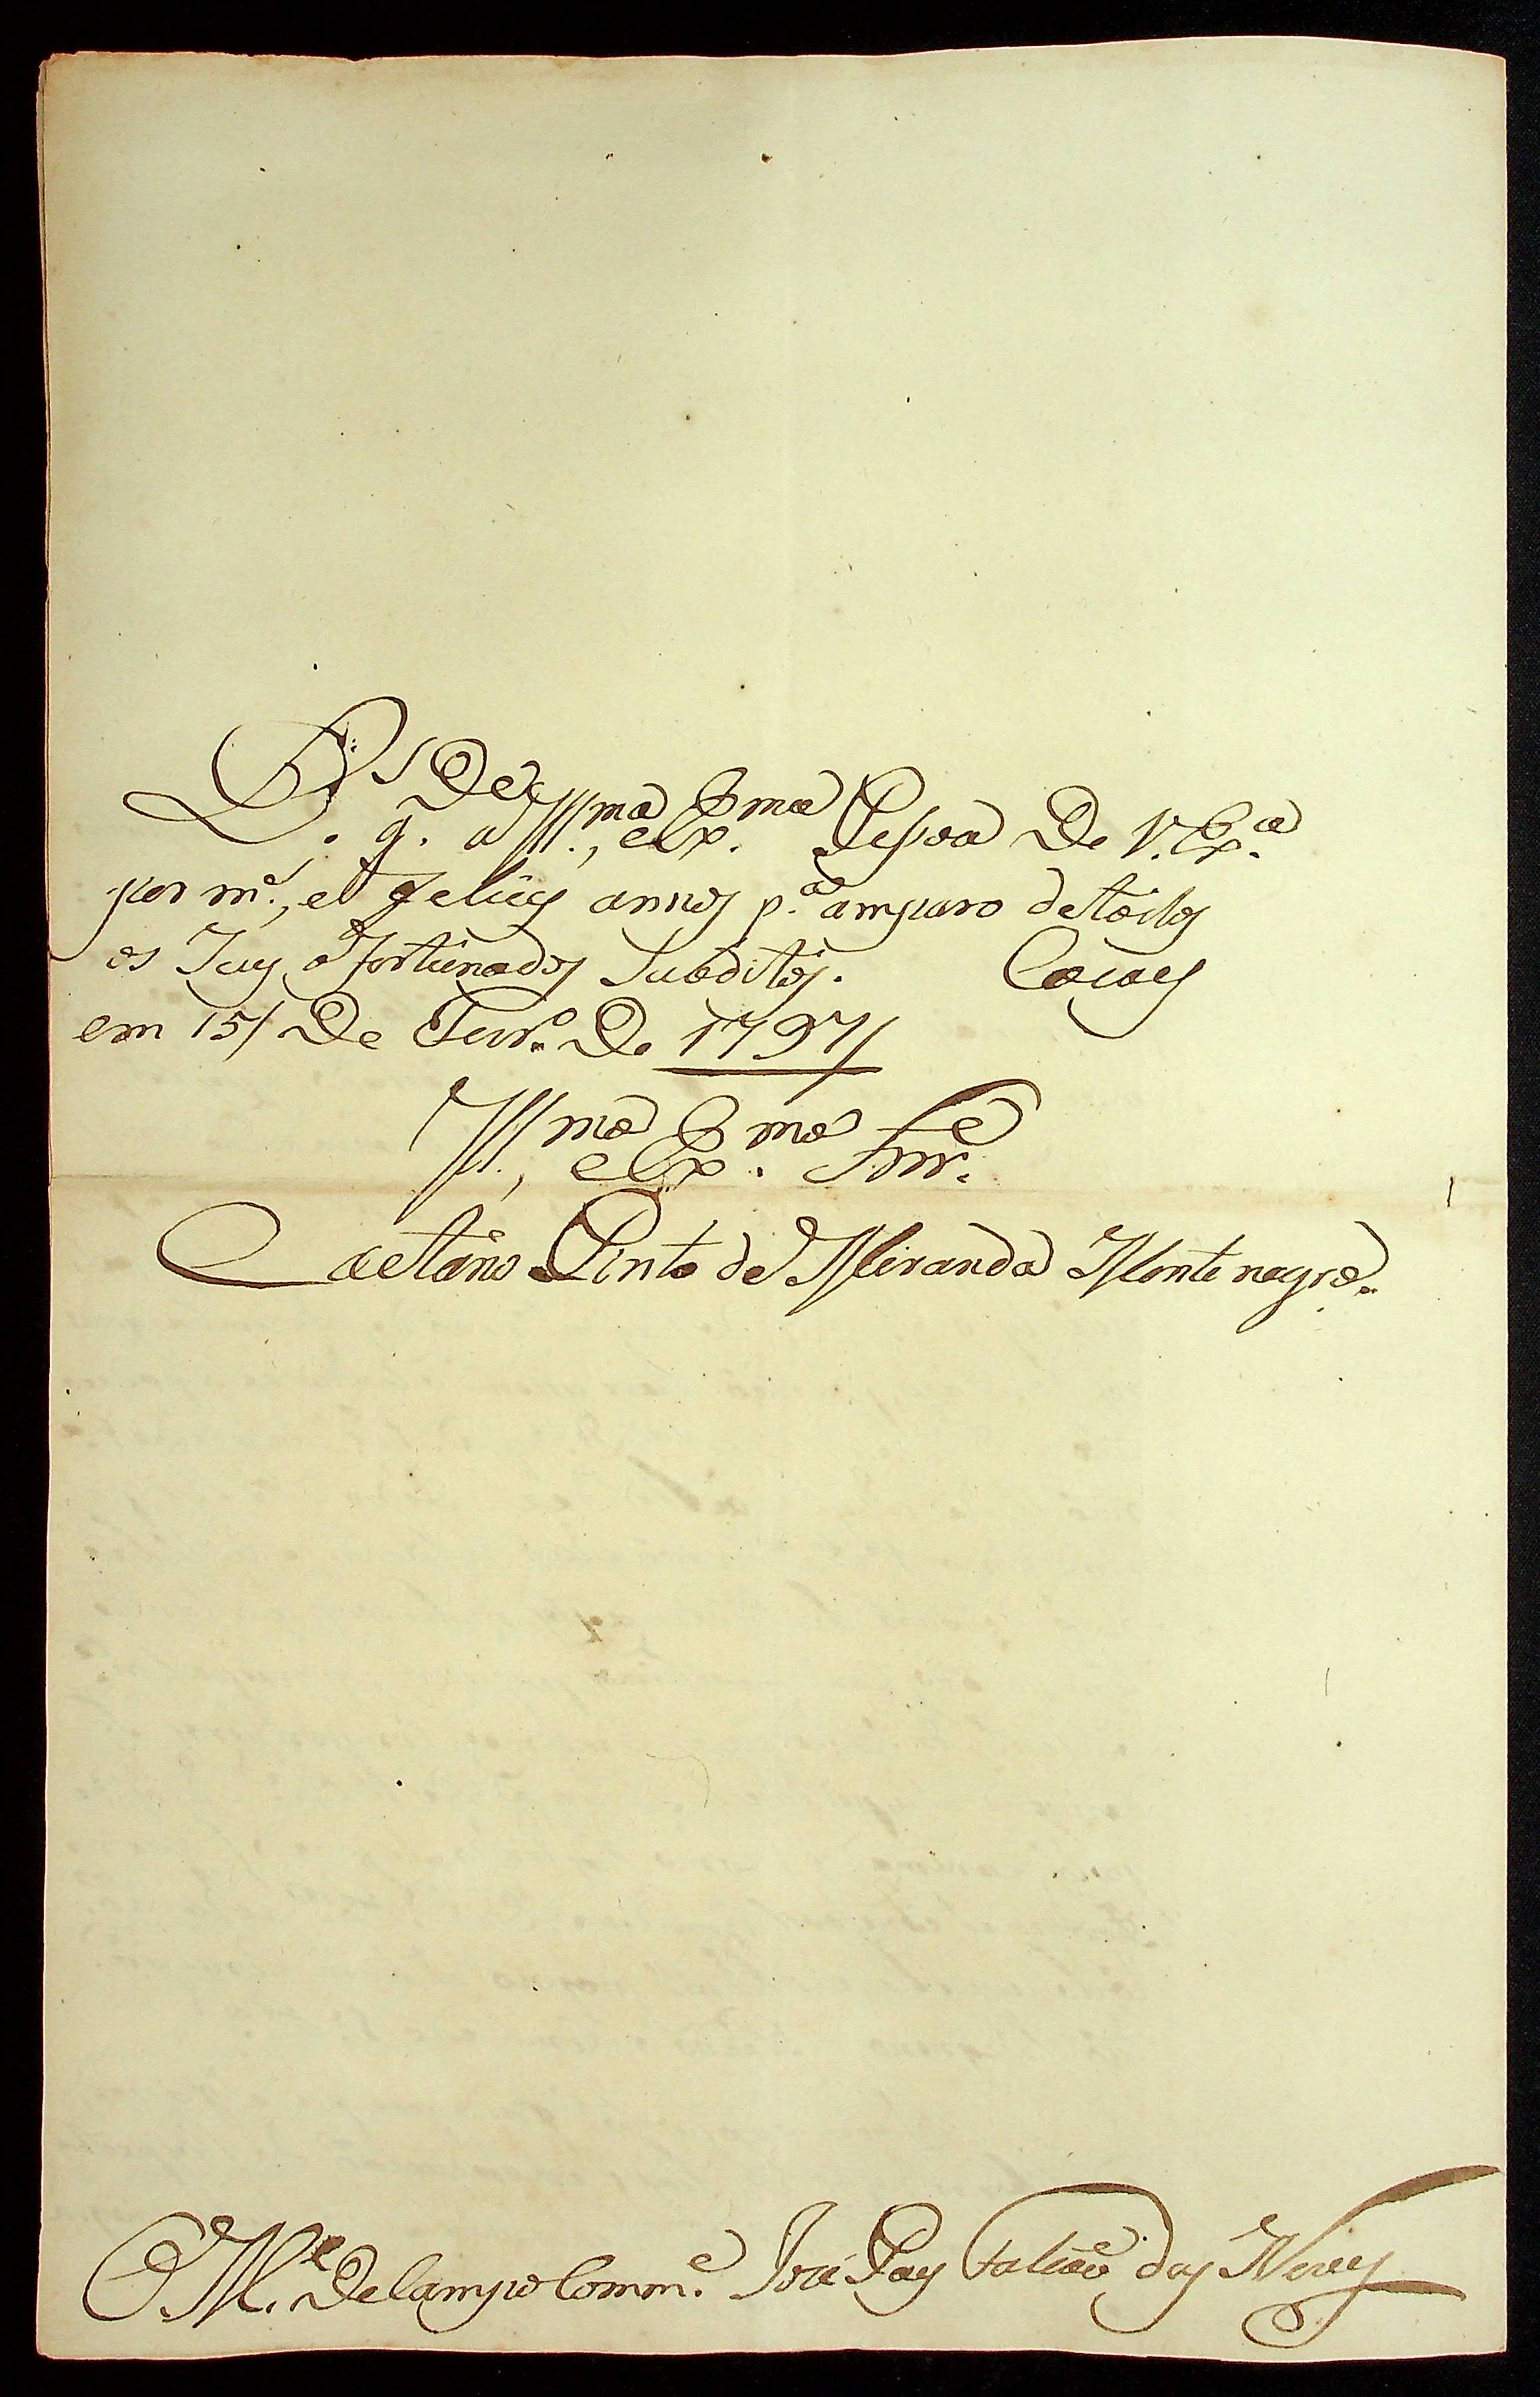 D.s g.de a Ill.ma, e Ex.ma Pessoa De V. Ex.ca
por m.s, e felices annos p.a amparo de todos
os Seus afortunados Subditos. Cocaes
em 15/ De Janr.o De 1797/
Ill.mo, e Ex.mo Snr.e
Caetano Pinto de Miranda Montenegro.
O M.e De Campo Comm.e José Paes Falcão das Neves